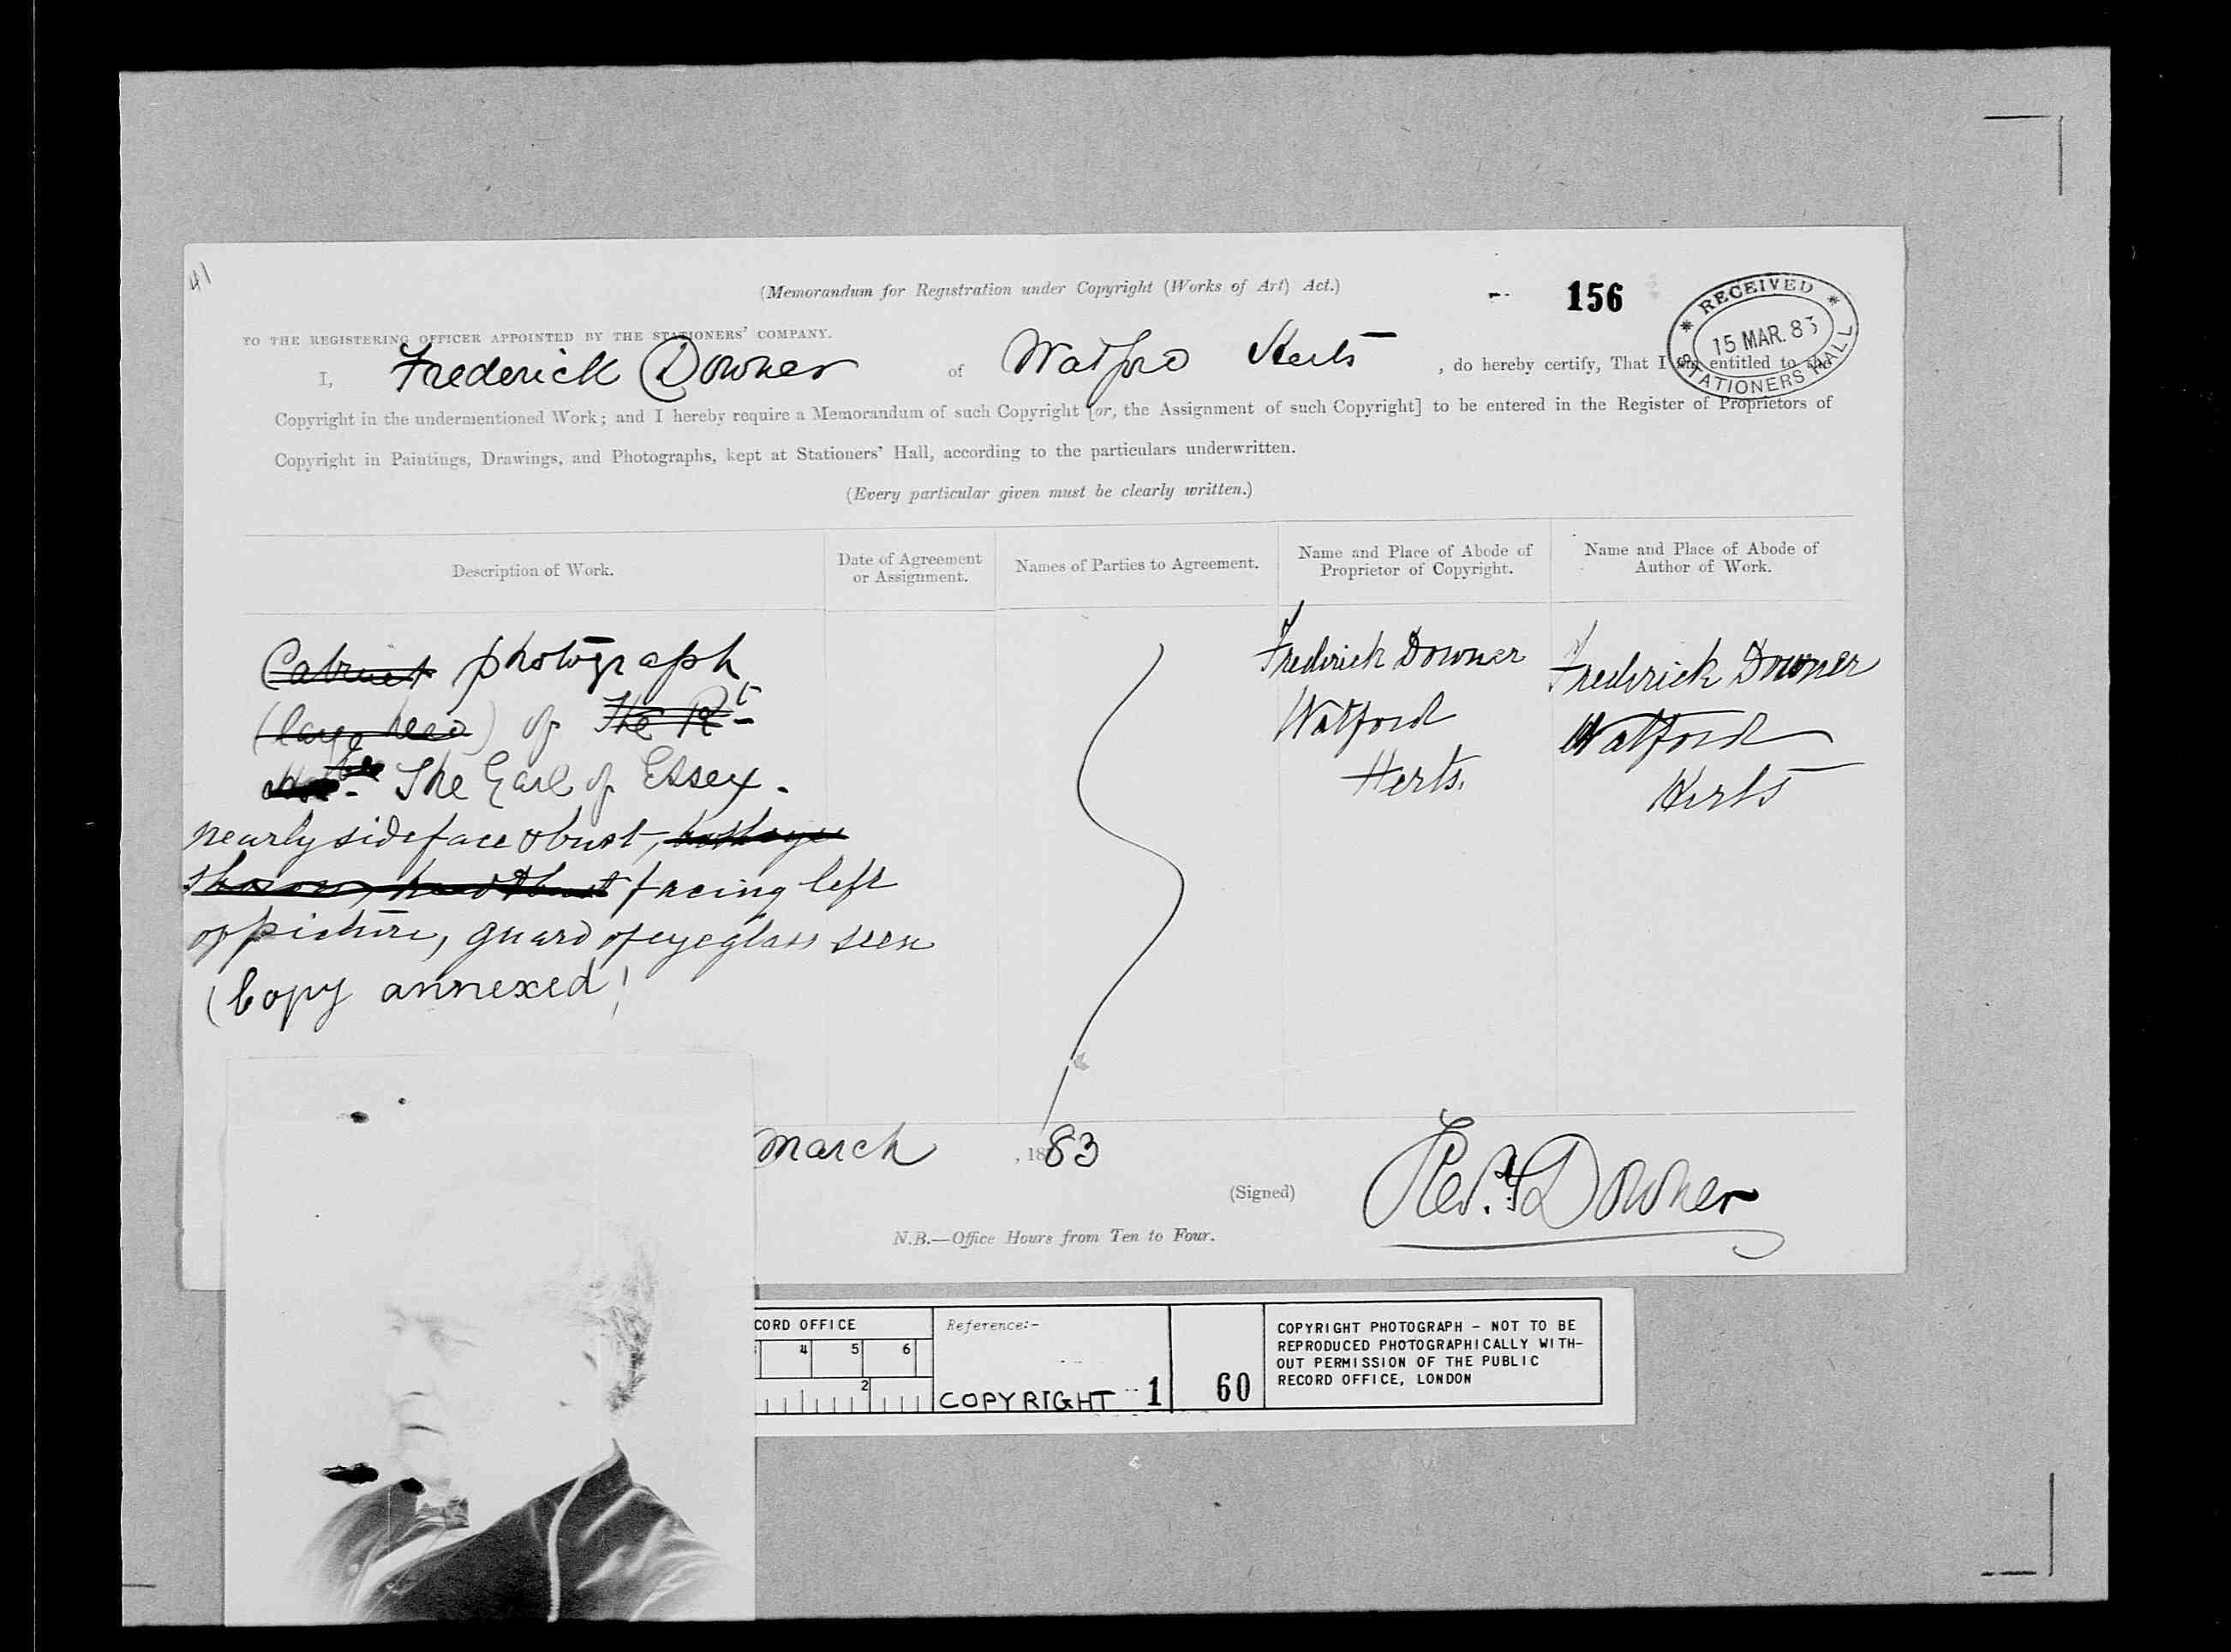 41
(Memorandum for Registration under Copyright (Works of Art) Act.)
156
RECEIVED
15 MAR. 83
STATIONERS HALL
TO THE REGISTERING OFFICER APPOINTED BY THE STATIONERS' COMPANY.
I, Frederick Downer of Watford Herts, do hereby certify, That I am entitled to the
Copyright in the undermentioned Work; and I hereby require a Memorandum of such Copyright [or, the Assignment of such Copyright] to be entered in the Register of Proprietors of
Copyright in Paintings, Drawings, and Photographs, kept at Stationers' Hall, according to the particulars underwritten.
(Every particular given must be clearly written.)
Description of Work.
Date of Agreement
or Assignment.
Names of Parties to Agreement.
Name and Place of Abode of
Proprietor of Copyright.
Name and Place of Abode of
Author of Work.
Cabinet photograph
(large head) of The Rt
The Earl of Essex.
nearly side face & bust,
facing left
of picture, guard of eyeglass seen
(Copy annexed)
Frederick Downer
Watford
Herts.
Frederick Downer
Watford
Herts
March , 1883
(Signed) Fredk Downer
N.B.—Office Hours from Ten to Four.
CORD OFFICE
4 5 6
2
Reference:-
COPYRIGHT 1 60
COPYRIGHT PHOTOGRAPH - NOT TO BE
REPRODUCED PHOTOGRAPHICALLY WITH-
OUT PERMISSION OF THE PUBLIC
RECORD OFFICE, LONDON